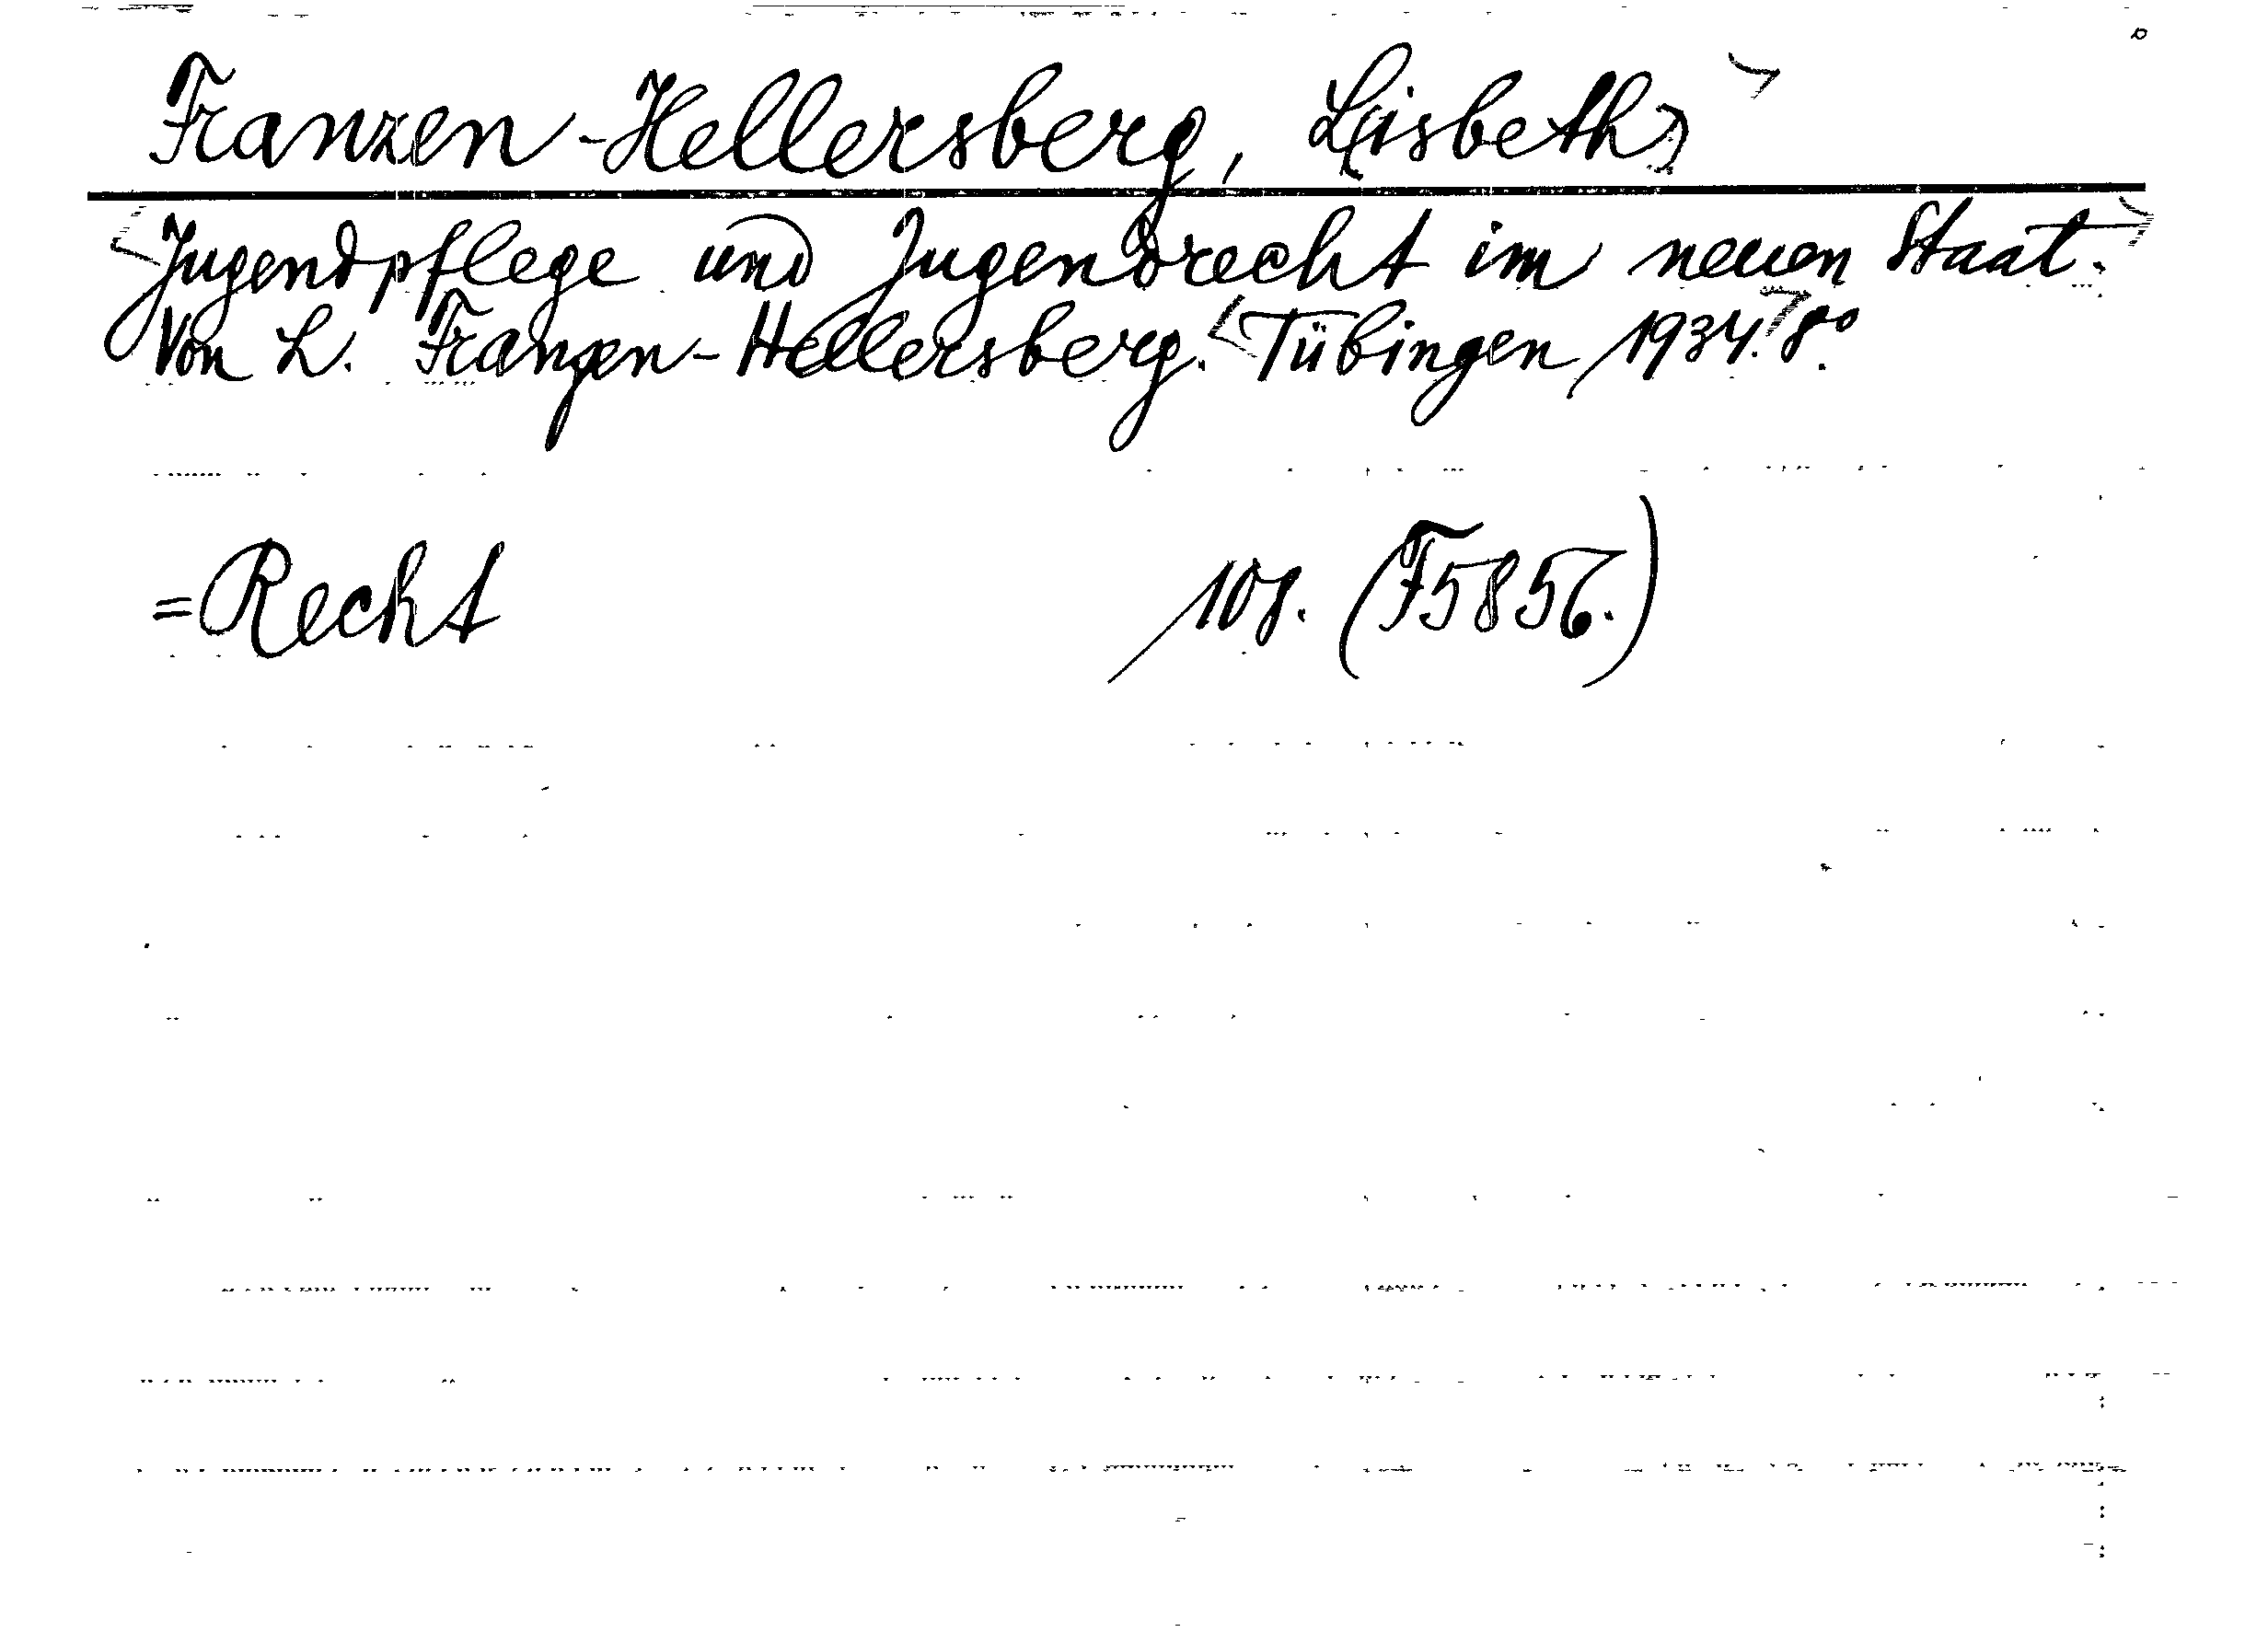 Franzen-Hellersberg, L(isbeth)
Jugendpflege und Jugendrecht im neuen Staat.
Von L. Franzen-Hellersberg. Tübingen 1934. 8°.
=Recht 108. (F5856.)